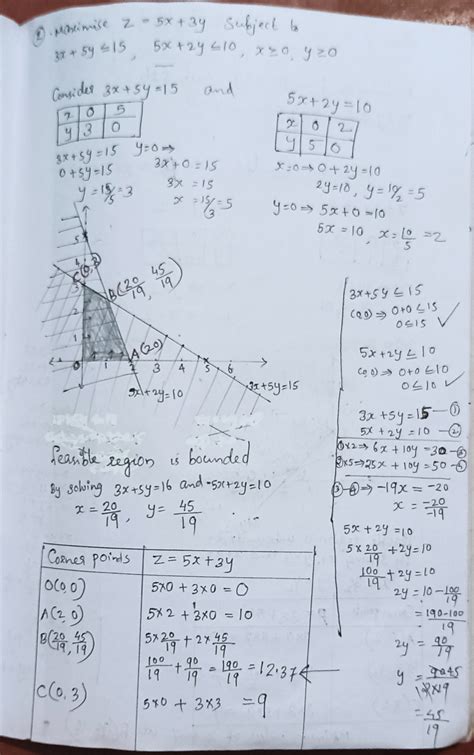 ⑧ Maximise Z = 5x + 3y Subject to
3x + 5y ≤ 15, 5x + 2y ≤ 10, x ≥ 0, y ≥ 0
Consider 3x + 5y = 15 and
x 0 5
y 3 0
3x + 5y = 15 y = 0 ⇒
0 + 5y = 15 3x + 0 = 15
y = 15/5 = 3 3x = 15
x = 15/3 = 5
5x + 2y = 10
x 0 2
y 5 0
x = 0 ⇒ 0 + 2y = 10
2y = 10, y = 10/2 = 5
y = 0 ⇒ 5x + 0 = 10
5x = 10, x = 10/5 = 2
5
4
C(0, 3)
3
2
1
B(20/19, 45/19)
A(2 0)
0 1 2 3 4 5 6
5x + 2y = 10
3x + 5y = 15
3x + 5y ≤ 15
(0, 0) ⇒ 0 + 0 ≤ 15
0 ≤ 15 ✓
5x + 2y ≤ 10
(0, 0) ⇒ 0 + 0 ≤ 10
0 ≤ 10 ✓
3x + 5y = 15 — ①
5x + 2y = 10 — ②
① × 2 ⇒ 6x + 10y = 30 — ③
② × 5 ⇒ 25x + 10y = 50 — ④
③ - ④ ⇒ -19x = -20
x = -20/-19
5x + 2y = 10
5 × 20/19 + 2y = 10
100/19 + 2y = 10
2y = 10 - 100/19
= 190 - 100/19
2y = 90/19
y = 90 45/2 × 19
= 45/19
Feasible region is bounded
By solving 3x + 5y = 16 and 5x + 2y = 10
x = 20/19, y = 45/19
Corner points Z = 5x + 3y
O(0, 0) 5×0 + 3×0 = 0
A(2, 0) 5×2 + 3×0 = 10
B(20/19, 45/19) 5×20/19 + 2×45/19
100/19 + 90/19 = 190/19 = 12.37 ←
C(0, 3) 5×0 + 3×3 = 9